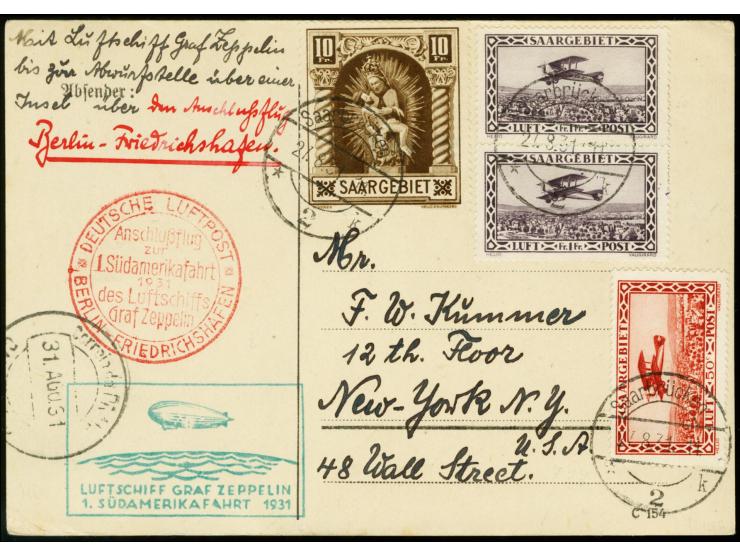 Mit Luftschiff Graf Zeppelin
bis zur Abwurfstelle über einer
Absender:
Insel über den Anschlussflug
Berlin-Friedrichshafen.
10 10
Fr. Fr.
SAARGEBIET
SAARGEBIET
LUFT Fr.1Fr. POST
SAARGEBIET
LUFT Fr.1Fr. POST
Saarbrücken
2
k
Saarbrücken
27.8.31
DEUTSCHE LUFTPOST
Anschlußflug
zur
1. Südamerikafahrt
1931
des Luftschiffs
Graf Zeppelin
BERLIN-FRIEDRICHSHAFEN
Mr.
F. W. Kummer
12 th. Floor
New-York N. Y.
U. S. A
48 Wall Street.
31. AUG. 31
SAARGEBIET
LUFT 50c. POST
Saarbrücken
2
k
C 154
LUFTSCHIFF GRAF ZEPPELIN
1. SÜDAMERIKAFAHRT 1931